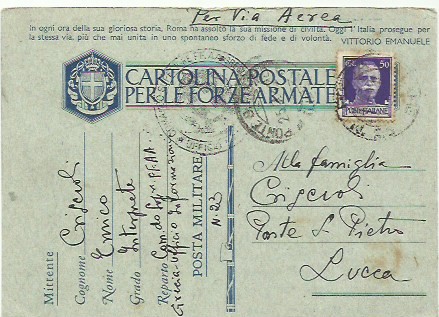 Per Via Aerea
In ogni ora della sua gloriosa storia, Roma ha assolto la sua missione di civiltà. Oggi l'Italia prosegue per
la stessa via, più che mai unita in uno spontaneo sforzo di fede e di volontà.
VITTORIO EMANUELE
CARTOLINA POSTALE
PER LE FORZE ARMATE
50
POSTE ITALIANE
PONTE
UFFICI
Alla famiglia
Ponte S. Pietro
Lucca
Mittente
Cognome
Nome Enrico
Grado Interprete
Reparto
Grecia - Ufficio Informazioni
POSTA MILITARE
N. 23